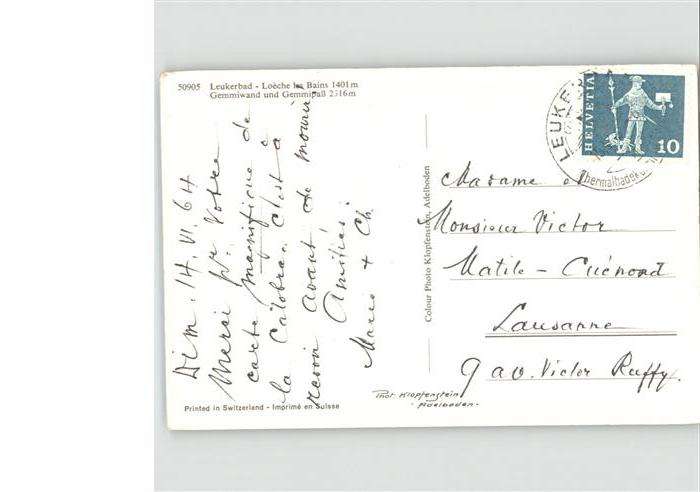 50905 Leukerbad - Loèche les Bains 1401 m
Gemmiwand und Gemmipaß 2316m
Dim. 14. VI. 64
Merci pr. votre
carte magnifique de
la Calobra. C'est à
revoir avant de mourir.
Amitiés:
Marie + Ch.
Printed in Switzerland - Imprimé en Suisse
Colour Photo Klopfenstein, Adelboden
LEUKE
Thermalbade
HELVETIA
10
Madame et
Monsieur Victor
Matile - Cuénoud
Lausanne
9 av. Victor Ruffy.
Phot Klopfenstein
- Adelboden -